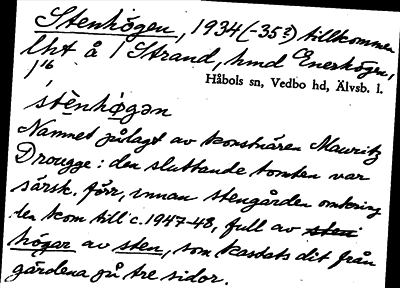 Stenhögen, 1934 (-35?) tillkommen
lht å 1 Strand, hmd Enerhögen,
1/16
Håbols sn, Vedbo hd, Älvsb. l.
stènhøgən
Namnet pålagt av konstnären Mauritz
Drougge: den sluttande tomten var
särsk. förr, innan stengården omkring
den kom till c. 1947-48, full av sten
högar av sten, som kastats dit från
gårdena på tre sidor.